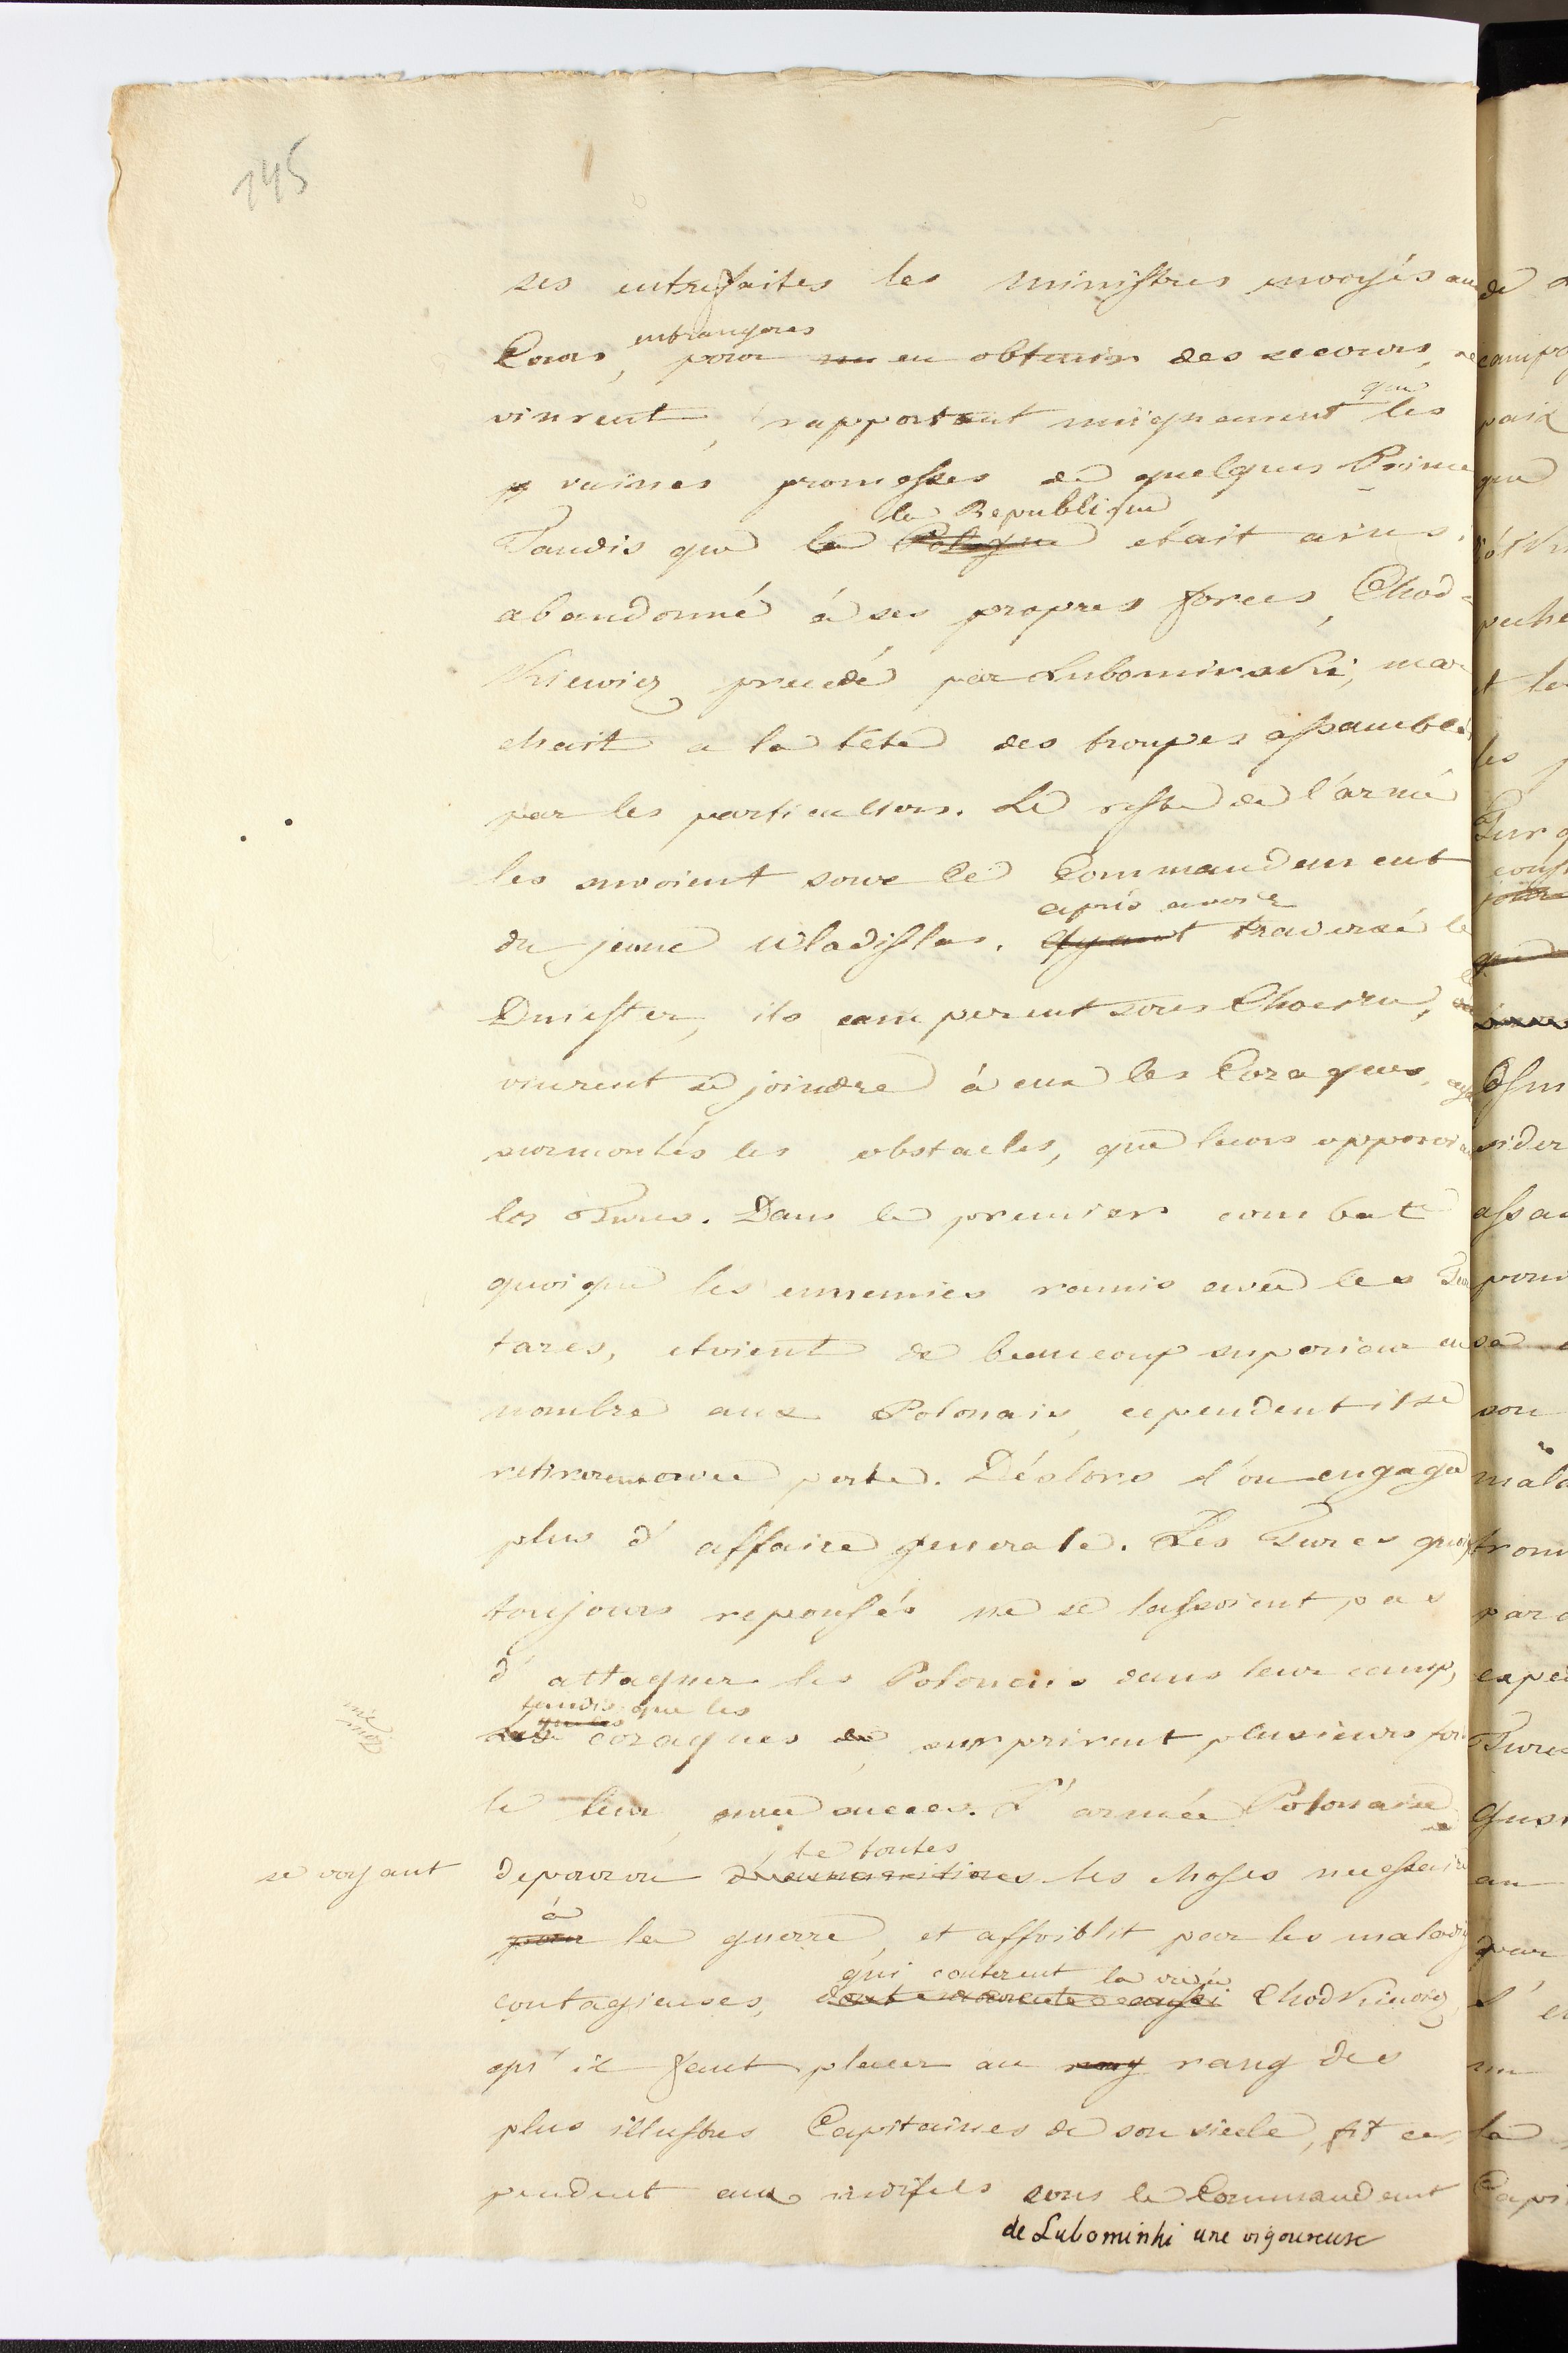 145
ses entrefaites les ministres envoyés au
Cours, entrangeres pour en obtenir des secours, re
vinrent, rapportant uniquement que les
vaines promesses de quelques Prince
Tandis que la Republique etait ainsi
abandonné à ses propres forces, Chod=
kiewicz precedé par Lubomirski, mar
chait a la tete des troupes assamblé
par les particuliers. Le reste de l'armé
les suivoient sous le Commandement
du jeune Wladislas. après avoir traversé le
Dniester, ils camperent sous Chocim,
vinrent se joindre à eux les Cozaques,
surmontés les obstacles, que leurs opposoi
les Turcs. Dans le premier combat
quoique les ennemies reunis avec les Ta
tares, etoient de beaucoup superieur en
nombre aux Polonais, cependent il se
retirerent avec perte. Déslors l'on engaga
plus d'affaire generale. Les Turcs quoi
toujours repoussés ne se lassoient pas
d'attaquer les Polonais dans leur camp,
tandis que les
cozaques surprirent plusieurs foi
le leur avec succes. L'armée Polonaise
se voyant depourvu de toutes les choses necessaire
à la guerre, et affoiblit par les maladi
contagieuses, qui couterent la vie à Chodkiewicz,
qu'il faut placer au rang des
plus illustres Capitaines de son siecle, fit ce
pendent aux sous le Commandent
de Lubominhi une vigoureuse